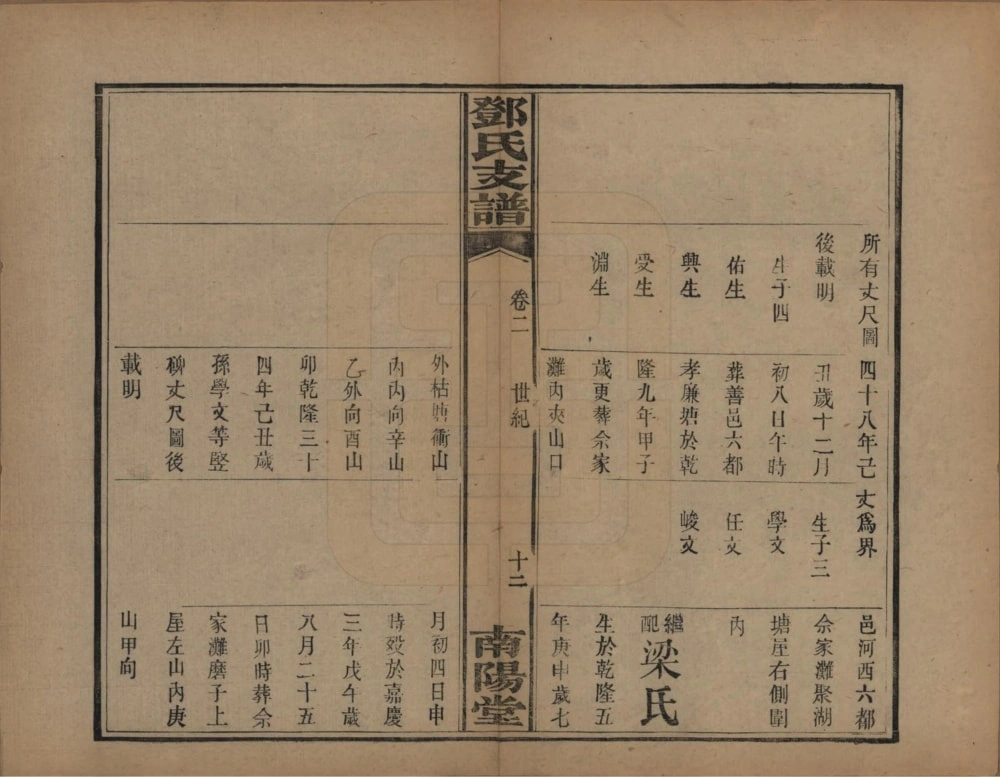 所有丈尺圖
後載明
生子四
佑生
興生
受生
淵生
四十八年己
丑歲十二月
初八日午時
葬善邑六都
孝廉塘於乾
隆九年甲子
歲更葬佘家
灘內夾山口
丈為界
生子三
學文
任文
峻文
邑河西六都
佘家灘聚湖
塘屋右側圍
內
繼配梁氏
生於乾隆五
年庚申歲七
鄧氏支譜
卷二
世紀
十二
南陽堂
外枯塘衝山
內丙向辛山
乙外向酉山
卯乾隆三十
四年己丑歲
孫學文等豎
碑丈尺圖後
載明
月初四日申
時歿於嘉慶
三年戊午歲
八月二十五
日卯時葬佘
家灘磨子上
屋左山內庚
山甲向